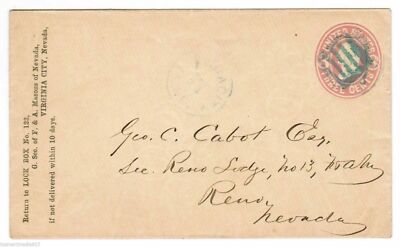 Return to LOCK BOX No. 123,
G. Sec. of F. & A. Masons of Nevada,
VIRGINIA CITY, Nevada,
if not delivered within 10 days.
UNITED STATES
THREE CENTS
Geo. C. Cabot Esq.
Sec. Reno Lodge, No 13,
Reno,
Nevada